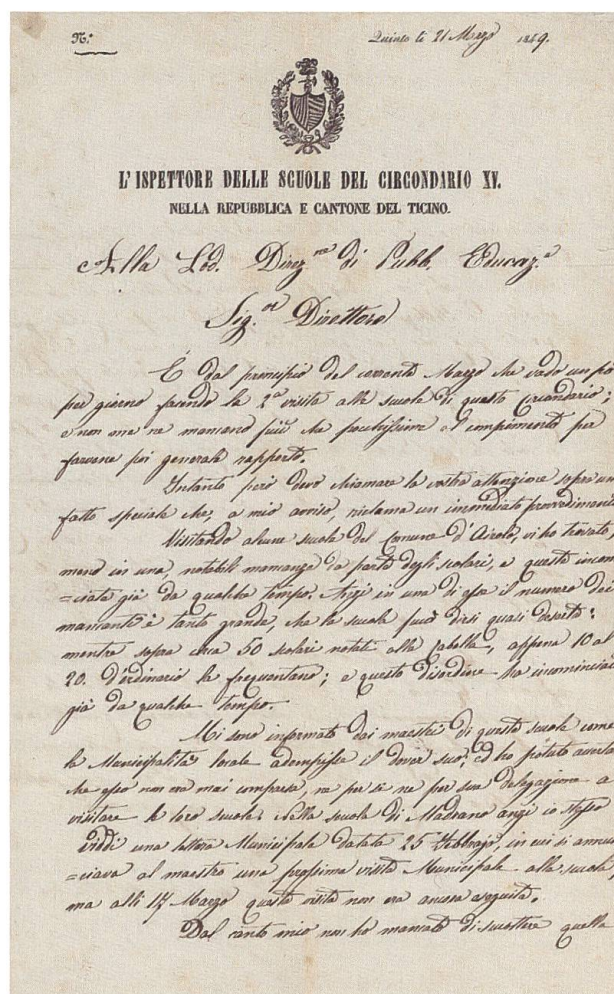 N.°
Quinto li 21 Marzo 1849.
L'ISPETTORE DELLE SCUOLE DEL CIRCONDARIO XV.
NELLA REPUBBLICA E CANTONE DEL TICINO.
Alla Lod. Direz.ne di Pubb. Educaz.e
Sig.or Direttore
È dal principio del corrente Marzo che vado un po'
per giorno facendo la 2.a visita alle scuole di questo Circondario;
e non me ne mancano più che pochissime al compimento per
farvene poi generale rapporto.
Intanto però devo chiamare la vostra attenzione sopra un
fatto speciale che, a mio avviso, reclama un immediato provvedimento
Visitando alcune scuole del Comune d'Airolo, vi ho trovato,
meno in una, notabili mancanze da parte degli scolari, e queste incom
=inciate già da qualche tempo. Anzi in una di esse il numero dei
mancanti è tanto grande, che la scuola può dirsi quasi deserta:
mentre sopra circa 50 scolari notati alla Tabella, appena 10 al
20. d'ordinario la frequentano; e questo disordine ha incominciato
già da qualche tempo.
Mi sono informato dai maestri di queste scuole come
la Municipalità locale adempisse il dover suo; ed ho potuto
che essa non era mai comparsa, nè per sè nè per sua delegazione a
visitare le loro scuole. Nella scuola di Madrano anzi io stesso
viddi una lettera Municipale datata 25 Febbrajo, in cui si annun
=ciava al maestro una prossima visita Municipale alla scuola,
ma alli 17 Marzo questa visita non era ancora eseguita.
Dal canto mio non ho mancato di scuotere quella